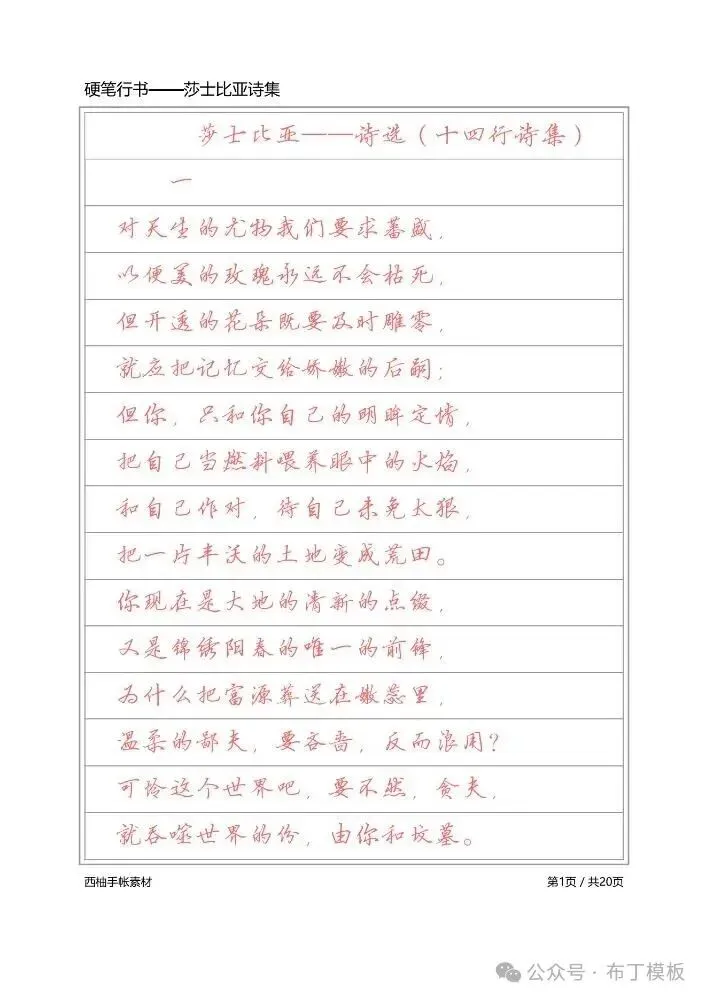 硬笔行书——莎士比亚诗集
莎士比亚——诗选（十四行诗集）
一
对天生的尤物我们要求蕃盛，
以便美的玫瑰永远不会枯死，
但开透的花朵既要及时雕零，
就应把记忆交给娇嫩的后嗣；
但你，只和你自己的明眸定情，
把自己当燃料喂养眼中的火焰，
和自己作对，待自己未免太狠，
把一片丰沃的土地变成荒田。
你现在是大地的清新的点缀，
又是锦绣阳春的唯一的前锋，
为什么把富源葬送在嫩蕊里，
温柔的鄙夫，要吝啬，反而浪用？
可怜这个世界吧，要不然，贪夫，
就吞噬世界的份，由你和坟墓。
西柚手帐素材
第1页 / 共20页
公众号 · 布丁模板